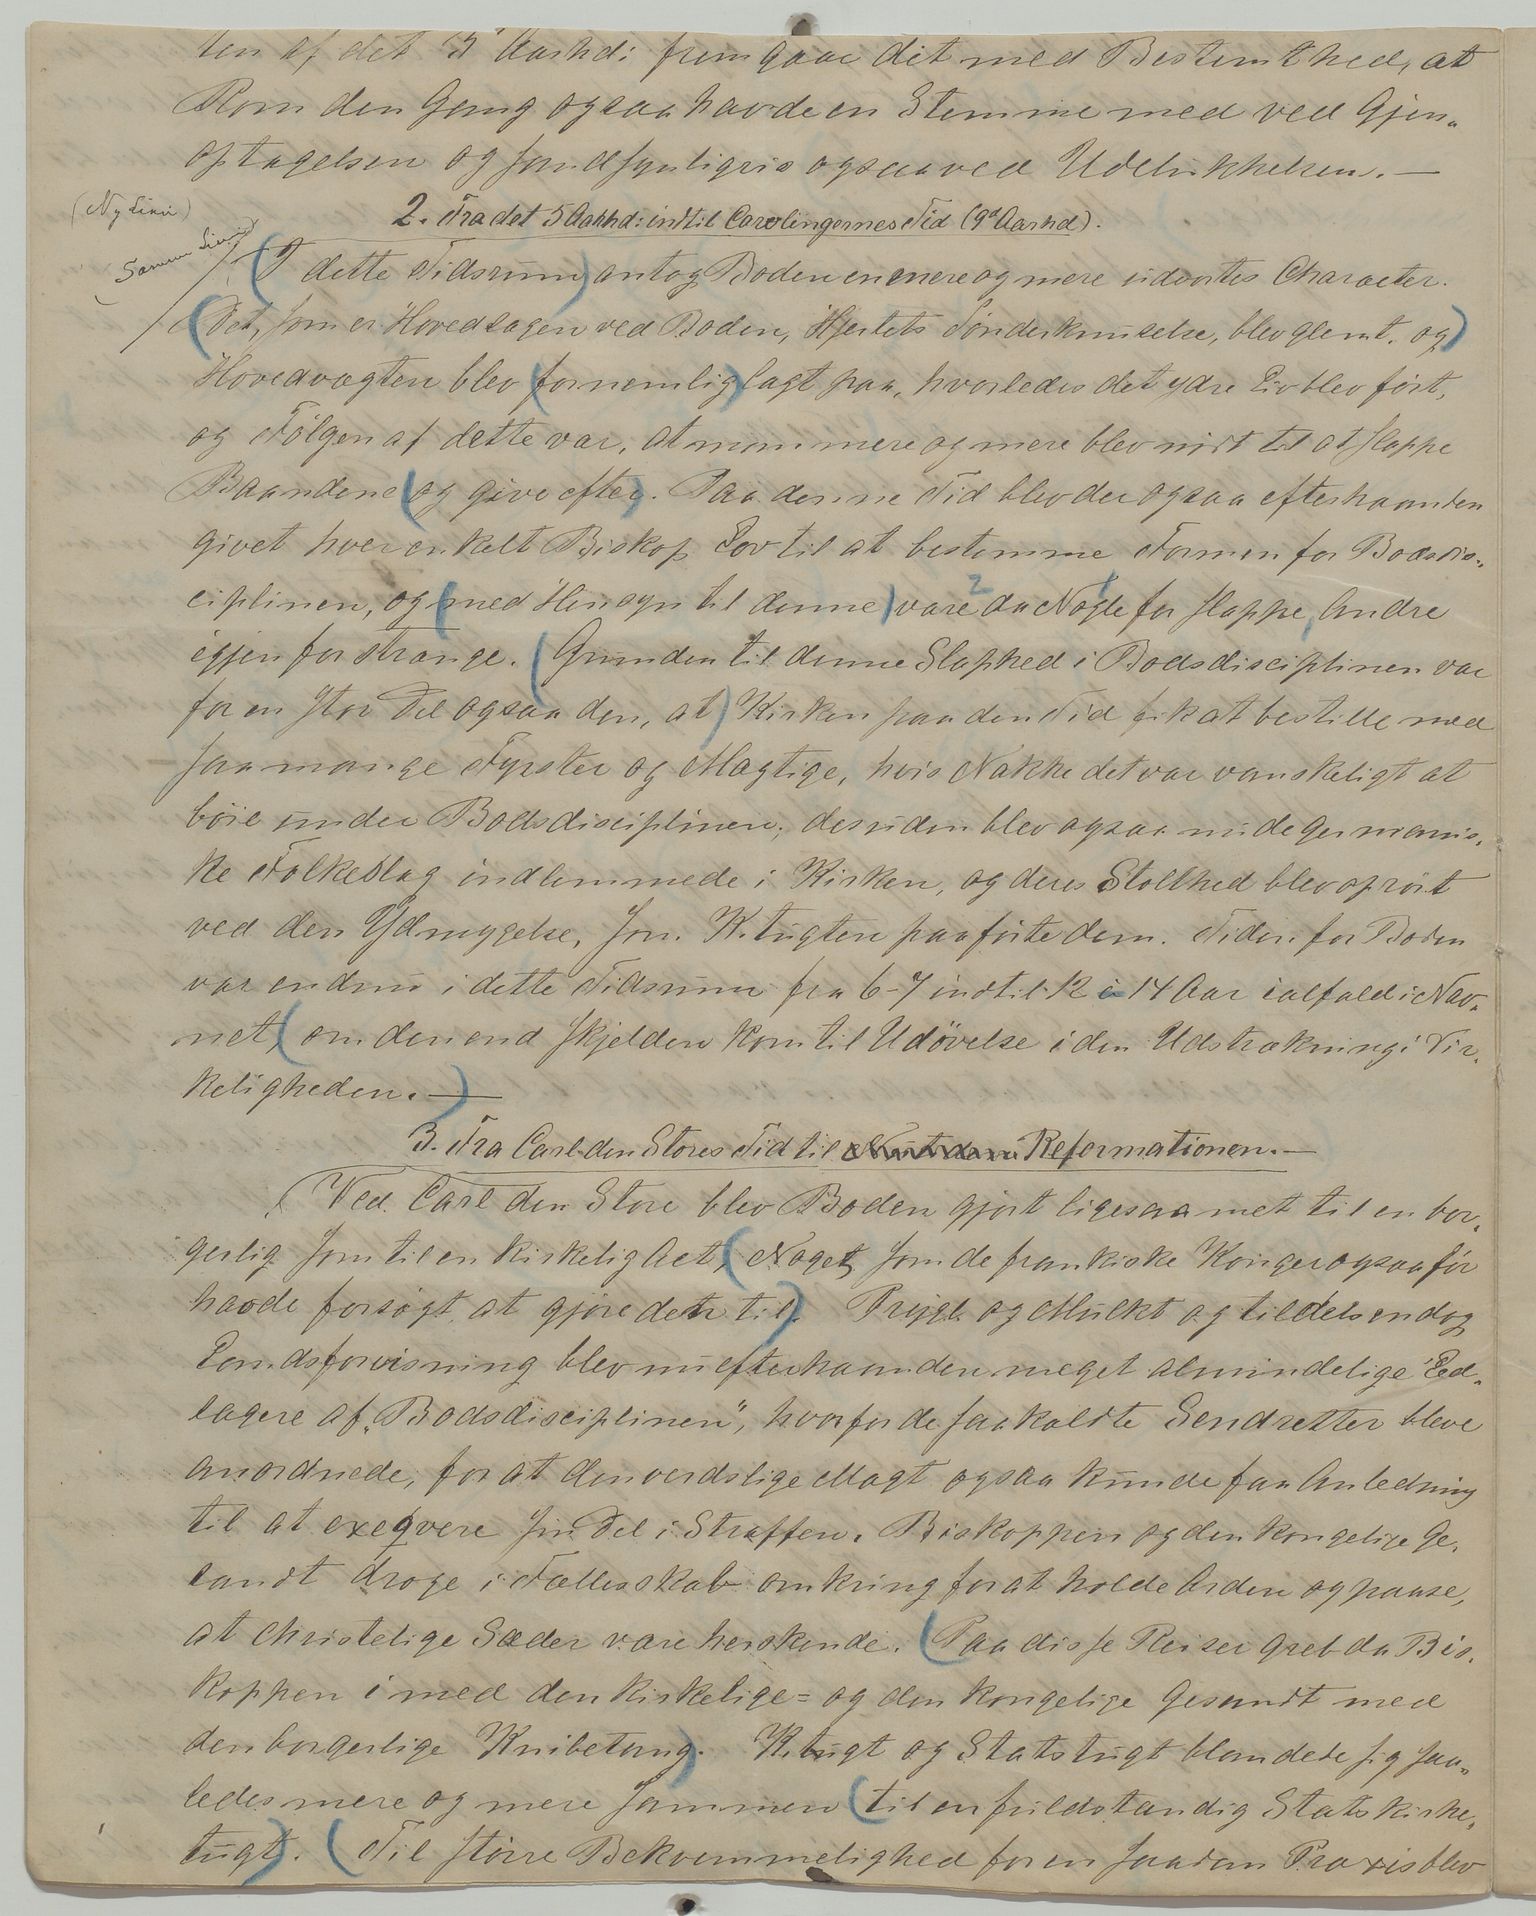 ten af det 5' Aarhd: fremgaar det med Bestemthed, at
Rom den Gang ogsaa havde en Stemme med ved Gjen-
optagelsen og sandsynligvis ogsaa ved Udelukkelsen. —
(Ny Linie)
2. Fra det 5 Aarhd: indtil Carolingernes Tid (9d Aarhd).
(Samme Linie)
(I dette Tidsrum) antog Boden en mere og mere udvortes Character.
(Det, som er Hovedsagen ved Boden, Hjertets Sønderknuselse, blev glemt, og)
Hovedvægten blev (fornemlig) lagt paa, hvorledes det ydre Liv blev ført,
og Følgen af dette var, at man mere og mere blev nødt til at slappe
Baandene (og give efter). Paa denne Tid blev der ogsaa efterhaanden
givet hver enkelt Biskop Lov til at bestemme Formen for Bodsdis-
ciplinen, og (med Hensyn til denne) vare da Nogle for slappe, Andre
2 1
igjen for strænge. (Grunden til denne Slaphed i Bodsdisciplinen var
for en stor Del ogsaa den, at) Kirken paa den Tid fik at bestille med
saa mange Fyrster og Mægtige, hvis Nakke det var vanskeligt at
bøie under Bodsdisciplinen; desuden blev ogsaa nu de germanis-
ke Folkeslag indlemmede i Kirken, og deres Stolthed blev oprørt
ved den Ydmygelse, som K.tugten paaførte dem. Tiden for Boden
var endnu i dette Tidsrum fra 6-7 indtil 12 à 14 Aar ialfald i Nav-
net, (om den end skjelden kom til Udøvelse i den Udstrækning i Vir-
keligheden. —)
3. Fra Carl den Stores Tid til Reformationen. —
(Ved Carl den Store blev Boden gjort ligesaa meget til en bor-
gerlig som til en kirkelig Act, (Noget, som de frankiske Konger ogsaa før
havde forsøgt at gjøre den til). Prygl og Mulkt og tildels endog
Landsforvisning blev nu efterhaanden meget almindelige Led-
sagere af "Bodsdisciplinen", hvorfor de saakaldte Sendretter bleve
anordnede, for at den verdslige Magt ogsaa kunde faa Anledning
til at exeqvere sin Del i Straffen. Biskoppen og den kongelige Ge-
sandt droge i Fællesskab omkring for at holde Orden og paase,
at christelige Sæder vare herskende. (Paa disse Reiser greb da Bis-
koppen i med den kirkelige = og den kongelige Gesandt med
den borgerlige Knibetang). K.tugt og Statstugt blandede sig saa-
ledes mere og mere sammen (til en fuldstændig Statskirke-
tugt). (Til større Bekvemmelighed for en saadan Praxis blev